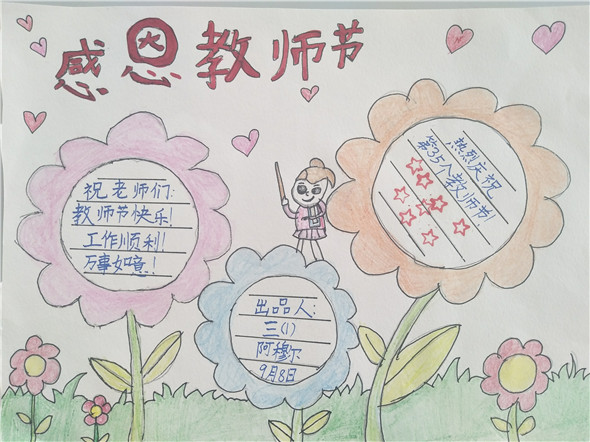 感恩教师节
祝老师们:
教师节快乐!
工作顺利!
万事如意!
热烈庆祝
第35个教师节!
出品人:
三(1)
阿穆尔
9月8日